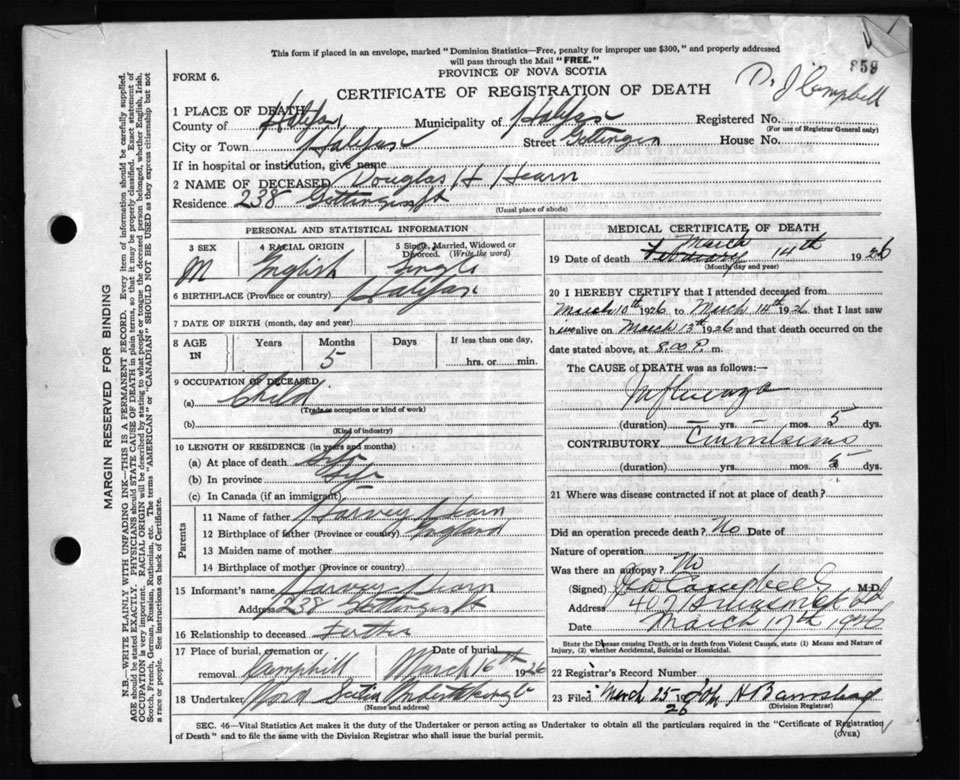 This form if placed in an envelope, marked "Dominion Statistics—Free, penalty for improper use $300," and properly addressed
will pass through the Mail "FREE."
859
FORM 6.
PROVINCE OF NOVA SCOTIA
Dr J Campbell
CERTIFICATE OF REGISTRATION OF DEATH
1 PLACE OF DEATH
County of Halifax Municipality of Halifax Registered No.
(For use of Registrar General only)
City or Town Halifax Street Gottingen House No.
If in hospital or institution, give name
2 NAME OF DECEASED Douglas H Hearn
Residence 238 Gottingen St
(Usual place of abode)
PERSONAL AND STATISTICAL INFORMATION
3 SEX 4 RACIAL ORIGIN 5 Single, Married, Widowed or
Divorced. (Write the word)
M English Single
6 BIRTHPLACE (Province or country) Halifax
7 DATE OF BIRTH (month, day and year)
8 AGE IN Years Months Days If less than one day,
5 hrs. or min.
9 OCCUPATION OF DECEASED
(a) Child
(Trade or occupation or kind of work)
(b)
(Kind of industry)
10 LENGTH OF RESIDENCE (in years and months)
(a) At place of death Life
(b) In province Life
(c) In Canada (if an immigrant)
Parents
11 Name of father Harvey Hearn
12 Birthplace of father (Province or country) England
13 Maiden name of mother
14 Birthplace of mother (Province or country)
15 Informant's name Harvey Hearn
Address 238 Gottingen St
16 Relationship to deceased Father
17 Place of burial, cremation or Date of burial
removal Camphill March 16th 1926
18 Undertaker Nova Scotia Undertaking Co
(Name and address)
MEDICAL CERTIFICATE OF DEATH
March
19 Date of death February 14th 1926
(Month, day and year)
20 I HEREBY CERTIFY that I attended deceased from
March 10th 1926 to March 14th 1926 that I last saw
h im alive on March 13th 1926 and that death occurred on the
date stated above, at 8.00 P. m.
The CAUSE OF DEATH was as follows:—
Influenza
(duration) — yrs. — mos. 5 dys.
CONTRIBUTORY Convulsions
(duration) yrs. mos. 5 dys.
21 Where was disease contracted if not at place of death?
Did an operation precede death? No Date of
Nature of operation
Was there an autopsy? No
(Signed) Geo Campbell M.D.
Address 407 Brunswick St
Date March 17th 1926
State the Disease causing Death, or in death from Violent Causes, state (1) Means and Nature of
Injury, (2) whether Accidental, Suicidal or Homicidal.
22 Registrar's Record Number
23 Filed March 25 - 26 John H Barnstead
(Division Registrar)
SEC. 46—Vital Statistics Act makes it the duty of the Undertaker or person acting as Undertaker to obtain all the particulars required in the "Certificate of Registration
of Death" and to file the same with the Division Registrar who shall issue the burial permit.
(OVER)
MARGIN RESERVED FOR BINDING
N.B.—WRITE PLAINLY WITH UNFADING INK—THIS IS A PERMANENT RECORD. Every item of information should be carefully supplied.
AGE should be stated EXACTLY. PHYSICIANS should STATE CAUSE OF DEATH in plain terms, so that it may be properly classified. Exact statement of
OCCUPATION is very important. RACIAL ORIGIN will be described by stating to what people or tongue the deceased person belonged, whether English, Irish,
Scotch, French, German, Russian, Ruthenian, etc. The terms "AMERICAN" or "CANADIAN" SHOULD NOT BE USED as they express citizenship but not
a race or people. See instructions on back of Certificate.